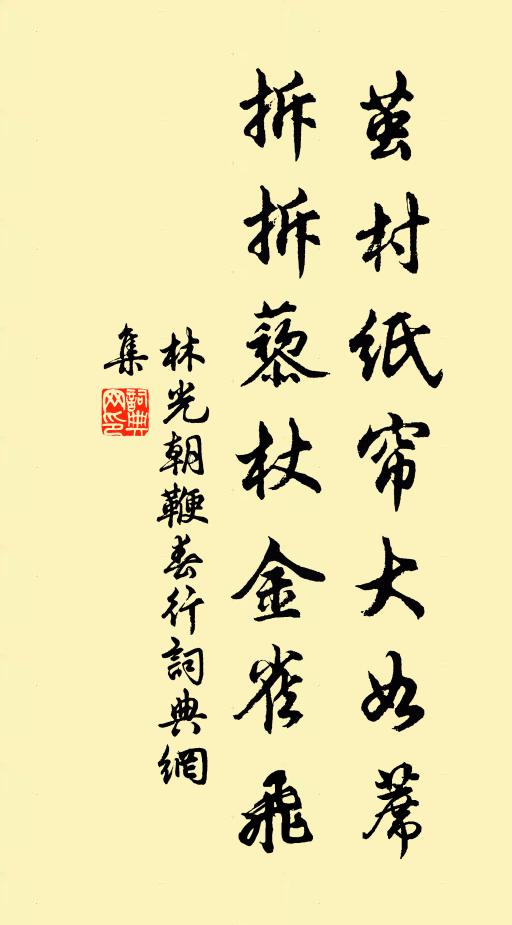 茧村紙帘大如蓆
拆拆藜杖金雀飛
林光朝鞭春行詞典網
集
詞典
网印